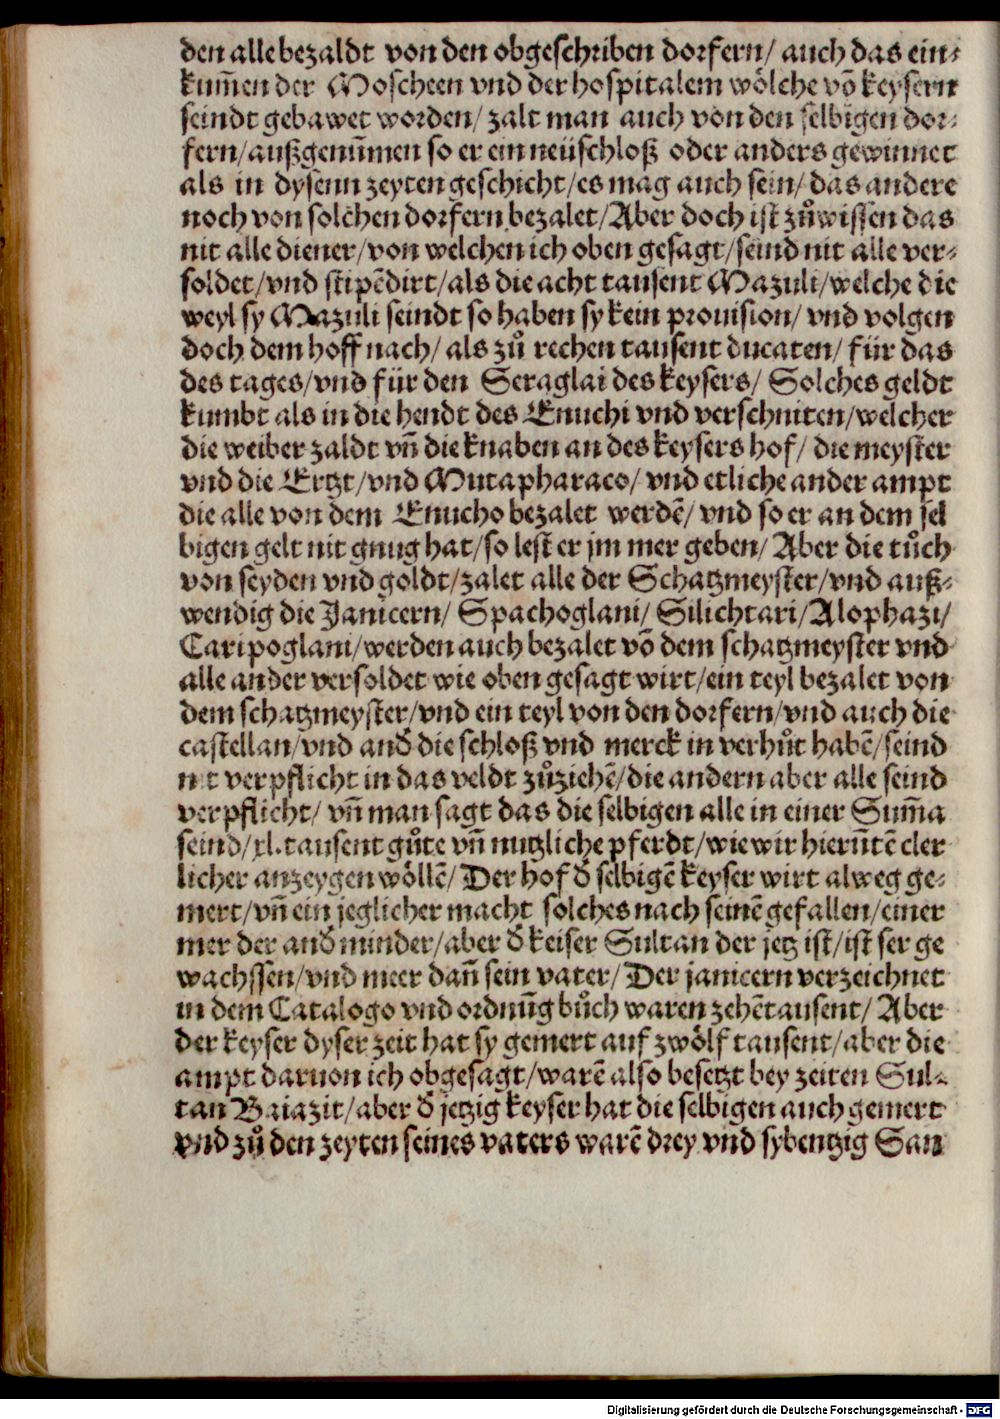 den alle bezaldt von den obgeschriben dorfern/ auch das ein-
kum̄en der Moscheen vnd der hospitalem wölche vō keysern
seindt gebawet worden/ zalt man auch von den selbigen dor-
fern/außgenūmen so er ein neüschloß oder anders gewinnet
als in dysenn zeyten geschicht/es mag auch sein/ das andere
noch von solchen dorfern bezalet/Aber doch ist zůwissen das
nit alle diener/von welchen ich oben gesagt/seind nit alle ver-
soldet/vnd stipēdirt/als die acht tausent Mazuli/welche die
weyl sy Mazuli seindt so haben sy kein prouision/ vnd volgen
doch dem hoff nach/ als zů rechen tausent ducaten/ für das
des tages/vnd für den Seraglai des keysers/ Solches geldt
kumbt als in die hendt des Enuchi vnd verschniten/welcher
die weiber zaldt vn̄ die knaben an des keysers hof/ die meyster
vnd die Ertzt/vnd Mutapharaco/ vnd etliche ander ampt
die alle von dem Enucho bezalet werdē/ vnd so er an dem sel
bigen gelt nit gnug hat/so lest er jm mer geben/ Aber die tůch
von seyden vnd goldt/zalet alle der Schatzmeyster/vnd auß-
wendig die Janicern/ Spachoglani/ Silichtari/Alophazi/
Caripoglani/werden auch bezalet vō dem schatzmeyster vnd
alle ander versoldet wie oben gesagt wirt/ein teyl bezalet von
dem schatzmeyster/vnd ein teyl von den dorfern/vnd auch die
castellan/vnd and̄ die schloß vnd merck in verhůt habē/seind
nit verpflicht in das veldt zůziehē/die andern aber alle seind
verpflicht/ vn̄ man sagt das die selbigen alle in einer Sum̄a
seind/xl.tausent gůte vn̄ nutzliche pferdt/wie wir hierūtē cler
licher anzeygen wöllē/ Der hof d̄ selbigē keyser wirt alweg ge-
mert/vn̄ ein jeglicher macht solches nach seinē gefallen/einer
mer der and̄ minder/aber d̄ keiser Sultan der jetz ist/ist ser ge
wachssen/vnd meer dan̄ sein vater/ Der janicern verzeichnet
in dem Catalogo vnd ordnūg bůch waren zehētausent/ Aber
der keyser dyser zeit hat sy gemert auf zwölf tausent/aber die
ampt daruon ich obgesagt/warē also besetzt bey zeiten Sul-
tan Baiazit/aber d̄ jetzig keyser hat die selbigen auch gemert
vnd zů den zeyten seines vaters warē drey vnd sybentzig San
Digitalisierung gefördert durch die Deutsche Forschungsgemeinschaft - DFG